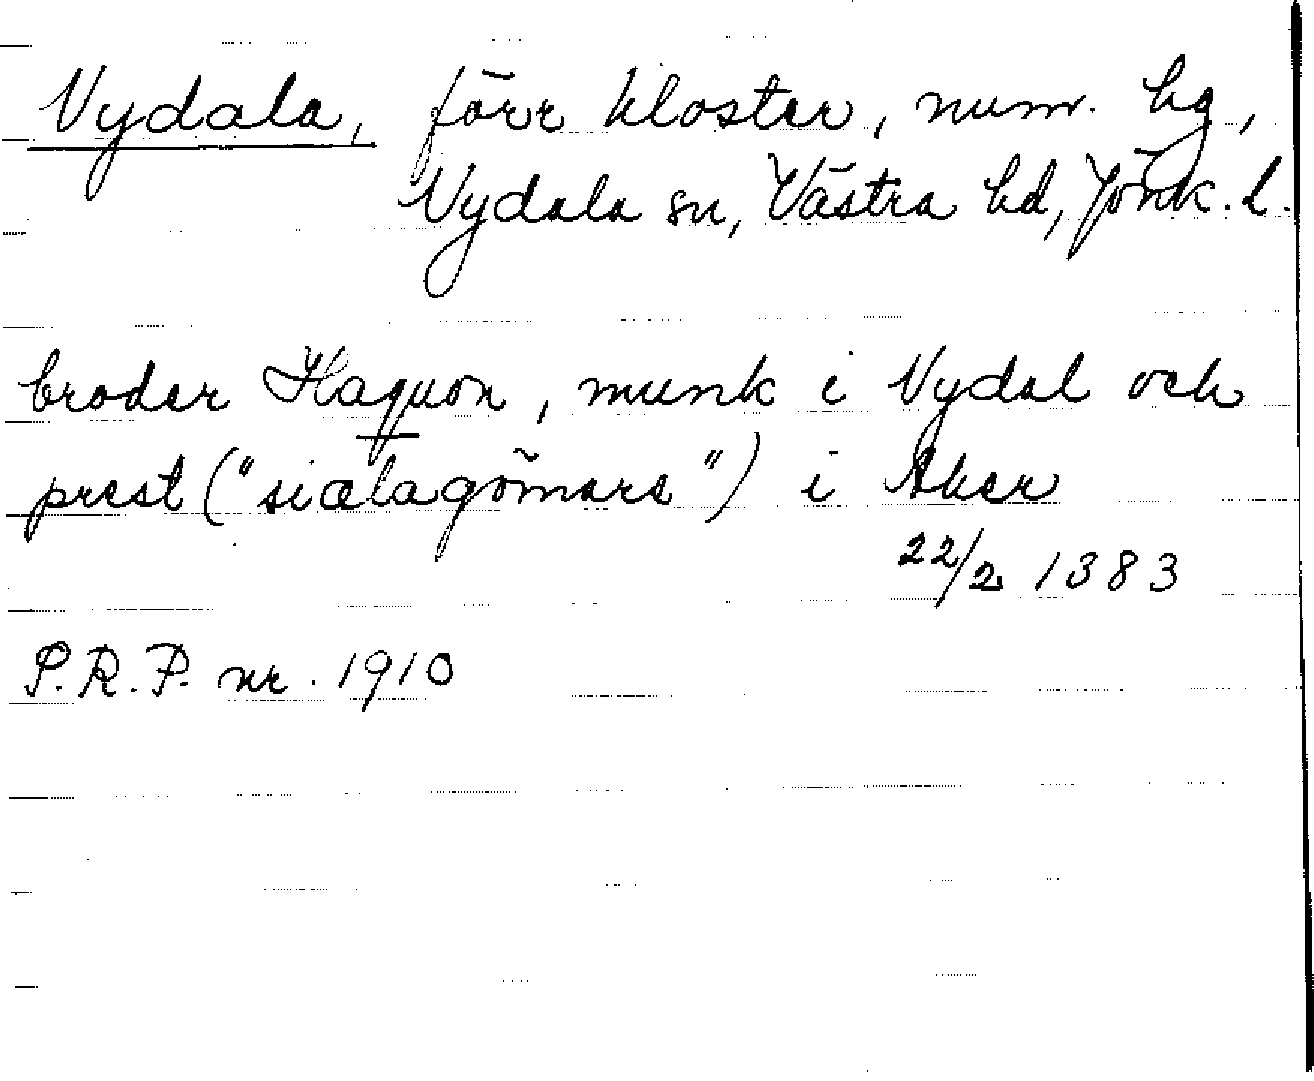 Nydala, förr kloster, num. hg,
Nydala sn, Västra hd, Jönk. l.
broder Haquon, munk i Nydal och
prest ("siælagömare") i Aker
22/2 1383
P.R.P. nr. 1910